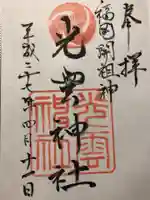 奉拝
福岡開祖神
光雲神社
平成二十七年四月十一日
光雲神社